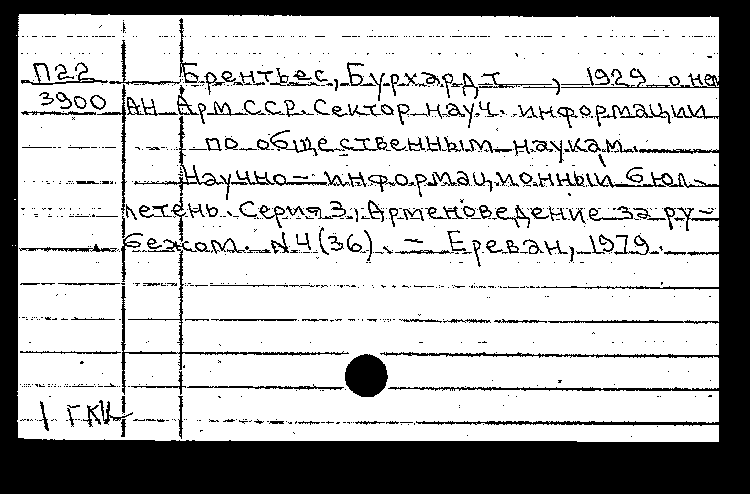 П22 Брентьес, Бурхардт , 1929 о нем
3900 АН Арм ССР. Сектор науч. информации
по общественным наукам.
Научно – информационный бюл-
летень. Серия 3, Арменоведение за ру-
бежом. N 4 (36). – Ереван, 1979.
1 ГКИ